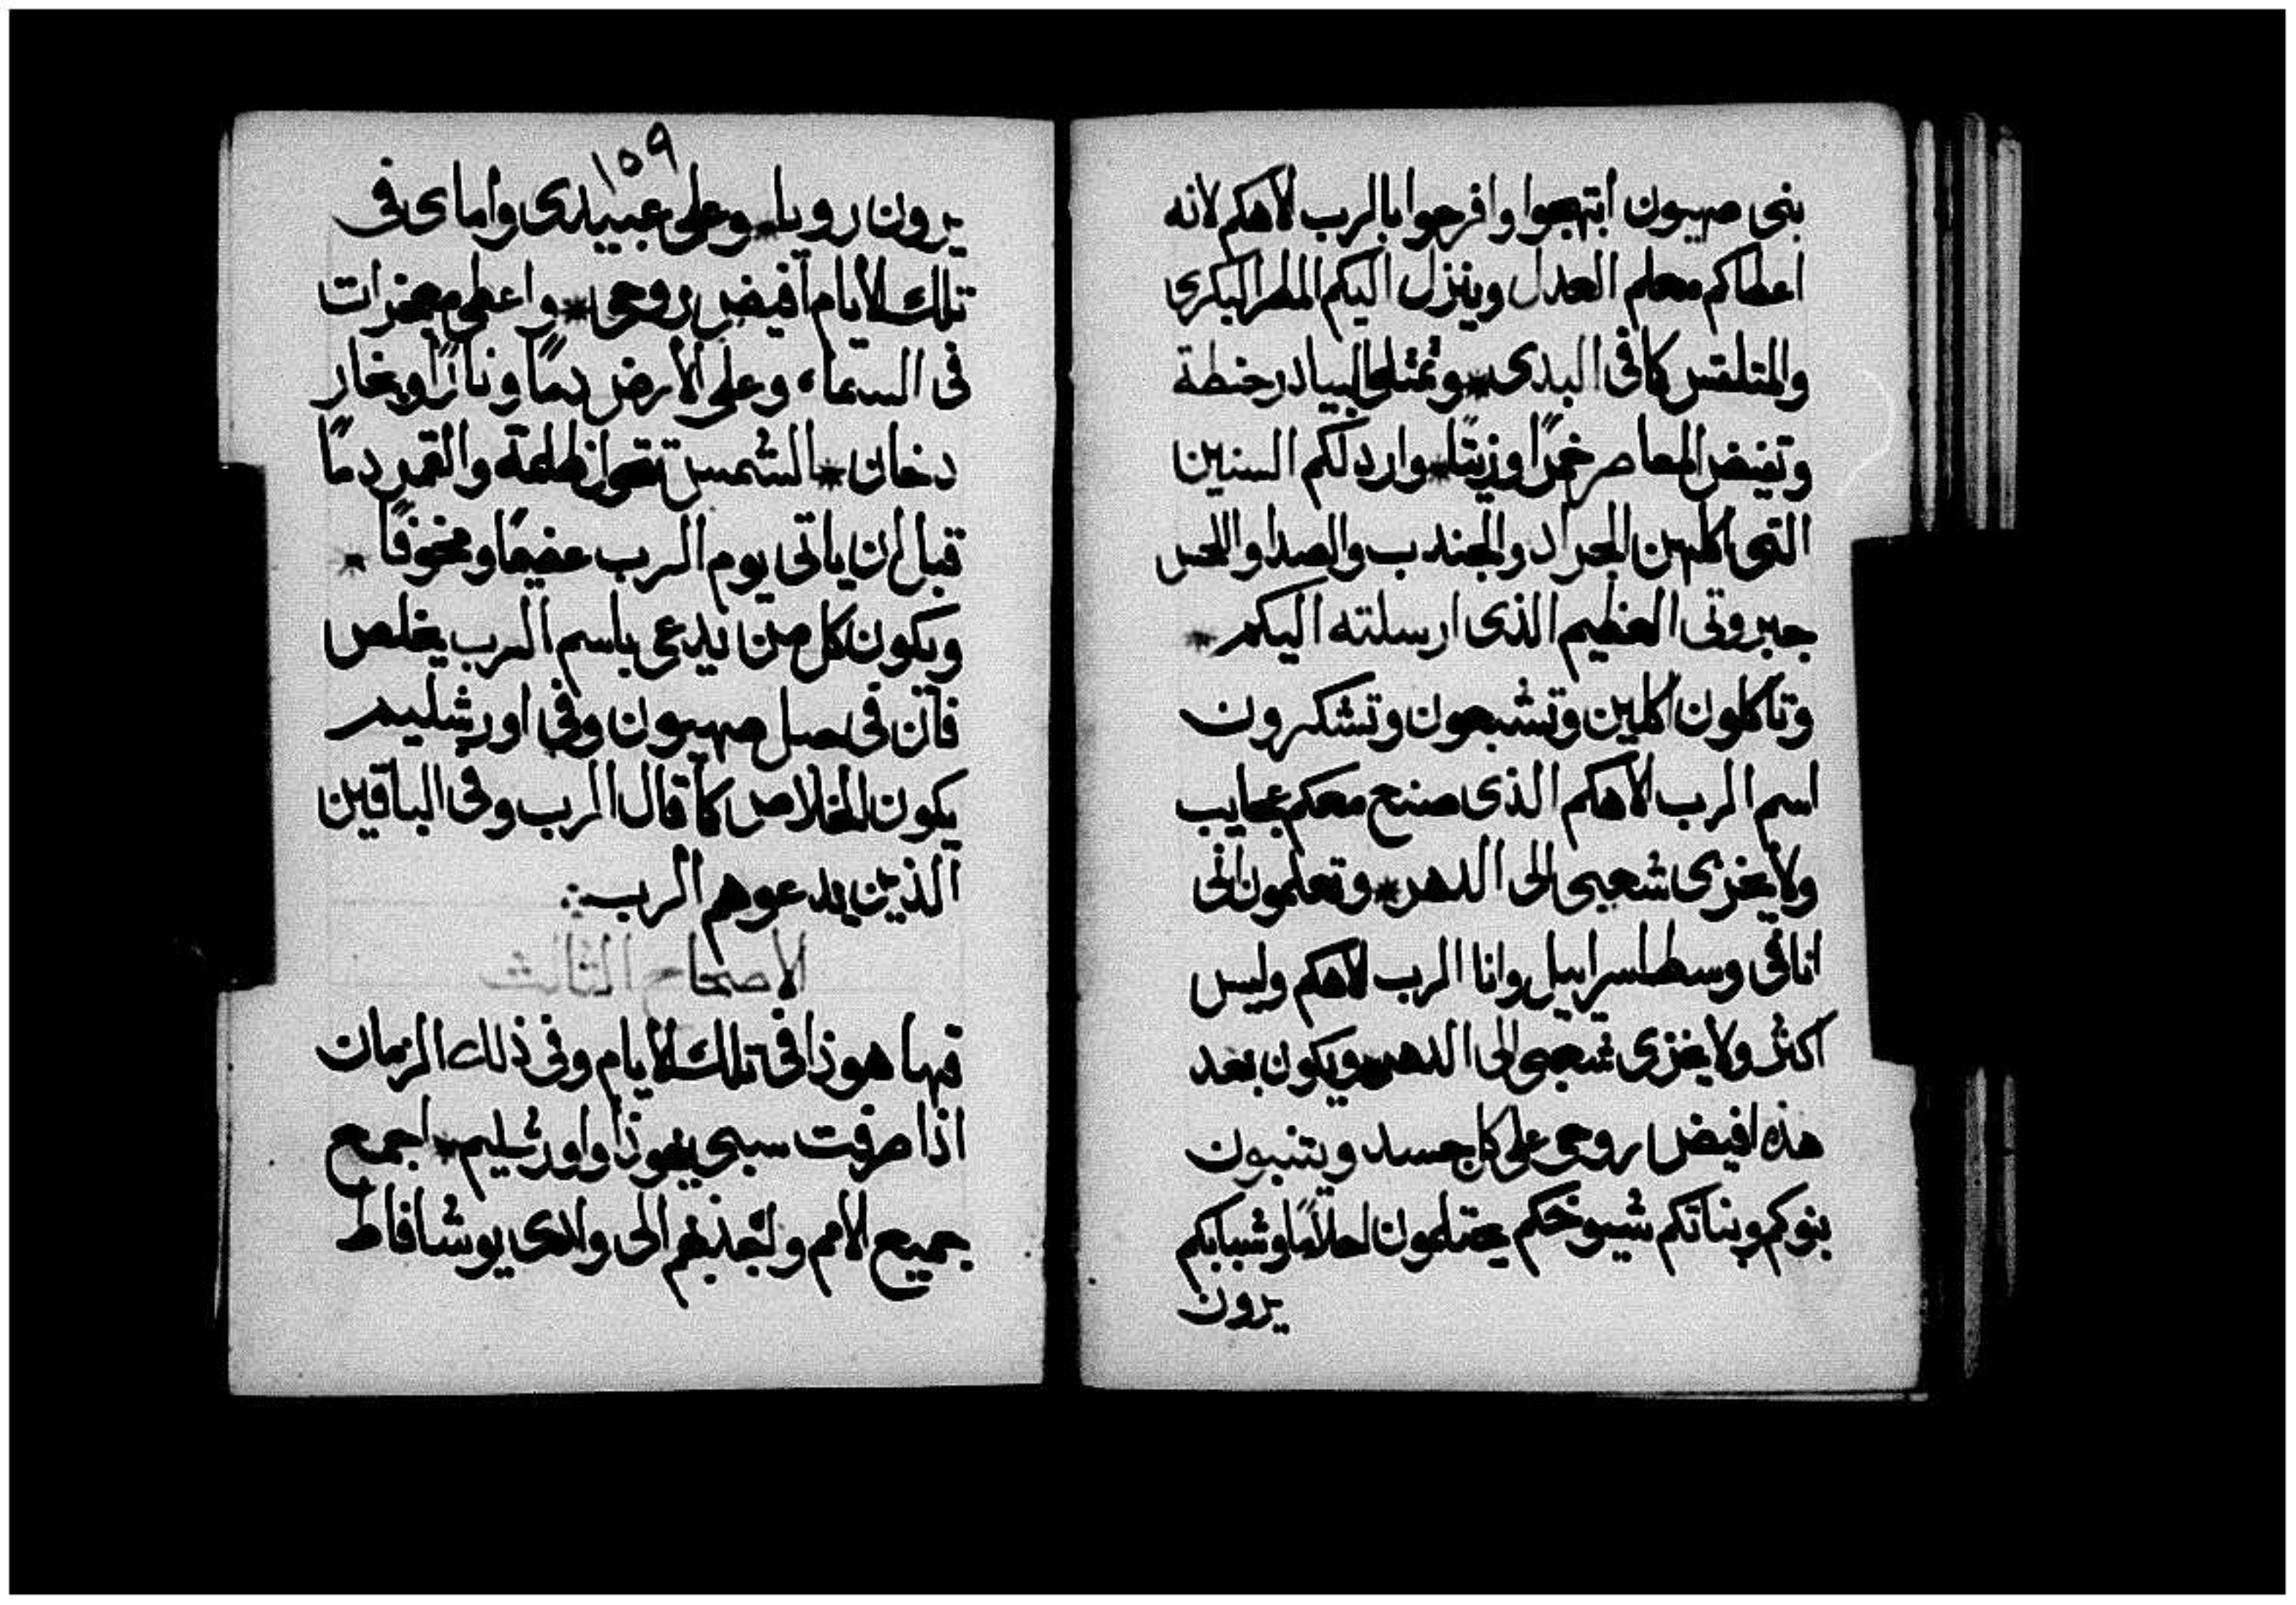 بنى صهيون ابتهجوا وافرحوا بالرب الاهكم لانه
اعطاكم معلم العدل وينزل اليكم المطر البكرى
والمتلقس كما فى البدى * وتمتلى البيادر حنطة
وتفيض المعاصر خمرًا وزيتًا * واردلكم السنين
التى اكلهن الجراد والجندب والصدا واللحس
جبروتى العظيم الذى ارسلته اليكم *
وتاكلون اكلين وتشبعون وتشكرون
اسم الرب الاهكم الذى صنع معكم عجايب
ولا يخزى شعبى الى الدهر * وتعلمون انى
انا فى وسط اسراييل وانا الرب الاهكم وليس
اكثر ولا يخزى شعبى الى الدهر * ويكون بعد
هذه افيض روحى على كل جسد ويتنبون
بنوكم وبناتكم شيوخكم يحتلمون احلامًا وشبابكم
يرون
١٥٩
يرون رويا * وعلى عبيدى واماى فى
تلك الايام افيض روحى * واعطى معجزات
فى السماء وعلى الارض دمًا ونارًا وبخار
دخان * الشمس تتحول ظلمة والقمر دمًا
قبل ان ياتى يوم الرب عضيمًا ومخوفًا *
ويكون كل من يدعى باسم الرب يخلص
فان فى صهيون وفى اورشليم
يكون الخلاص كما قال الرب وفى الباقين
الذين يدعوهم الرب :.
الاصحاح الثالث
فها هوذا فى تلك الايام وفى ذلك الزمان
اذا صرفت سبى يهوذا واورشليم * اجمع
جميع الامم ولتجذبهم الى وادى يوشافاط